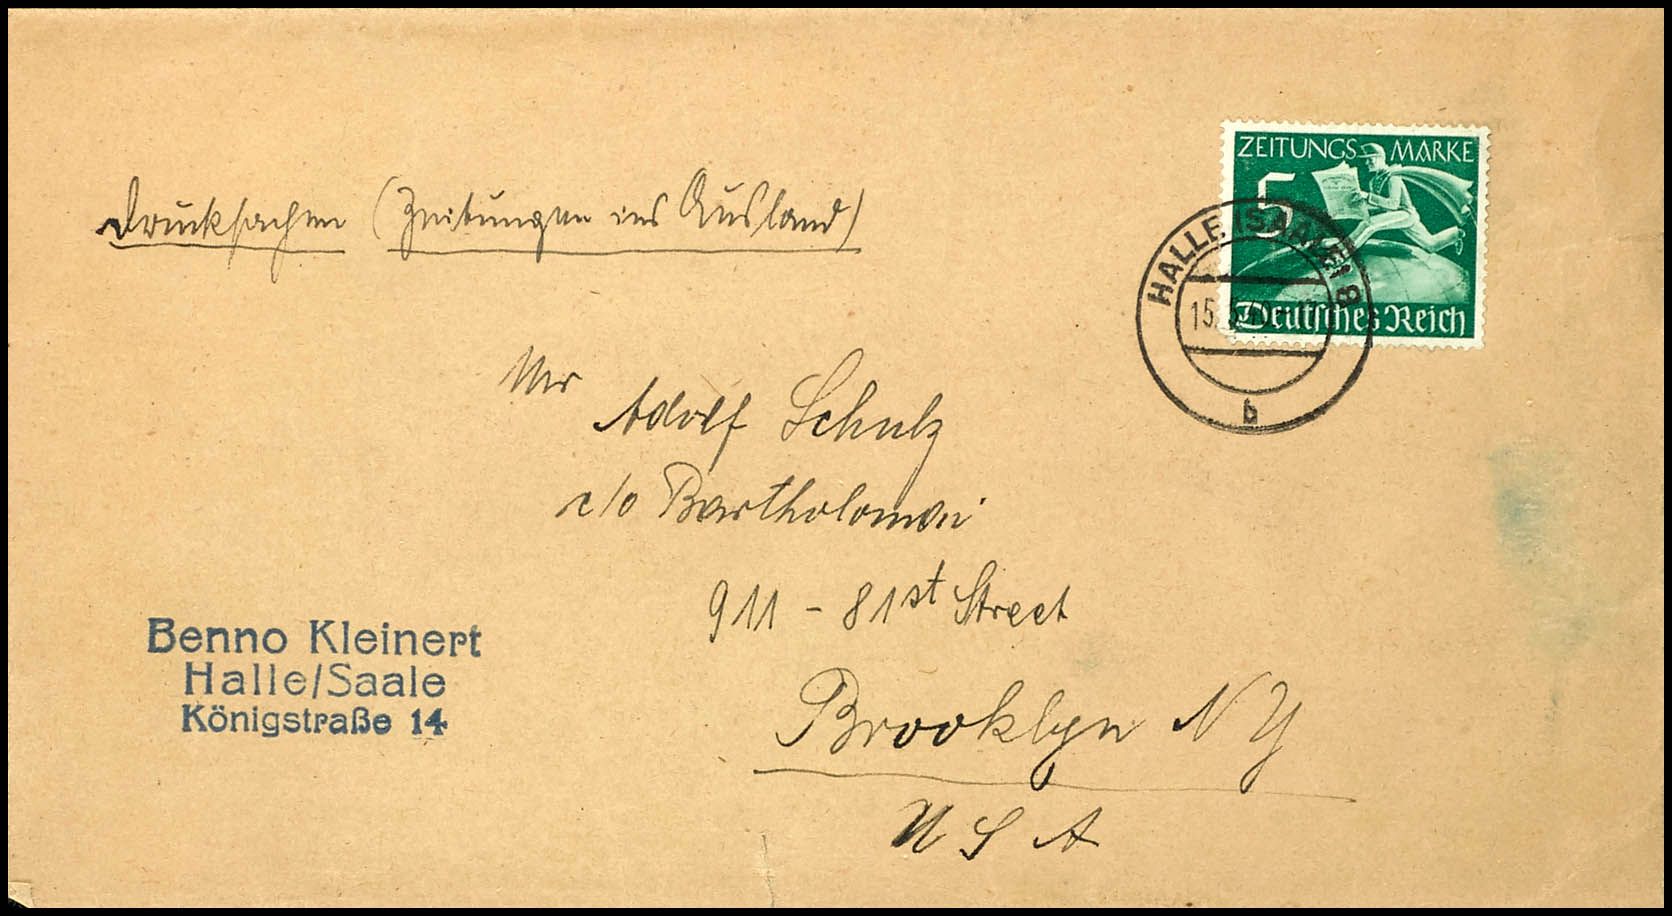 Drucksachen (Zeitungen ins Ausland)
ZEITUNGS MARKE
5
Deutsches Reich
HALLE (SAALE) 8
15.5.40
b
Mr
Adolf Schulz
c/o Bartholomäi
911 - 81st Street
Brooklyn NY
USA
Benno Kleinert
Halle/Saale
Königstraße 14